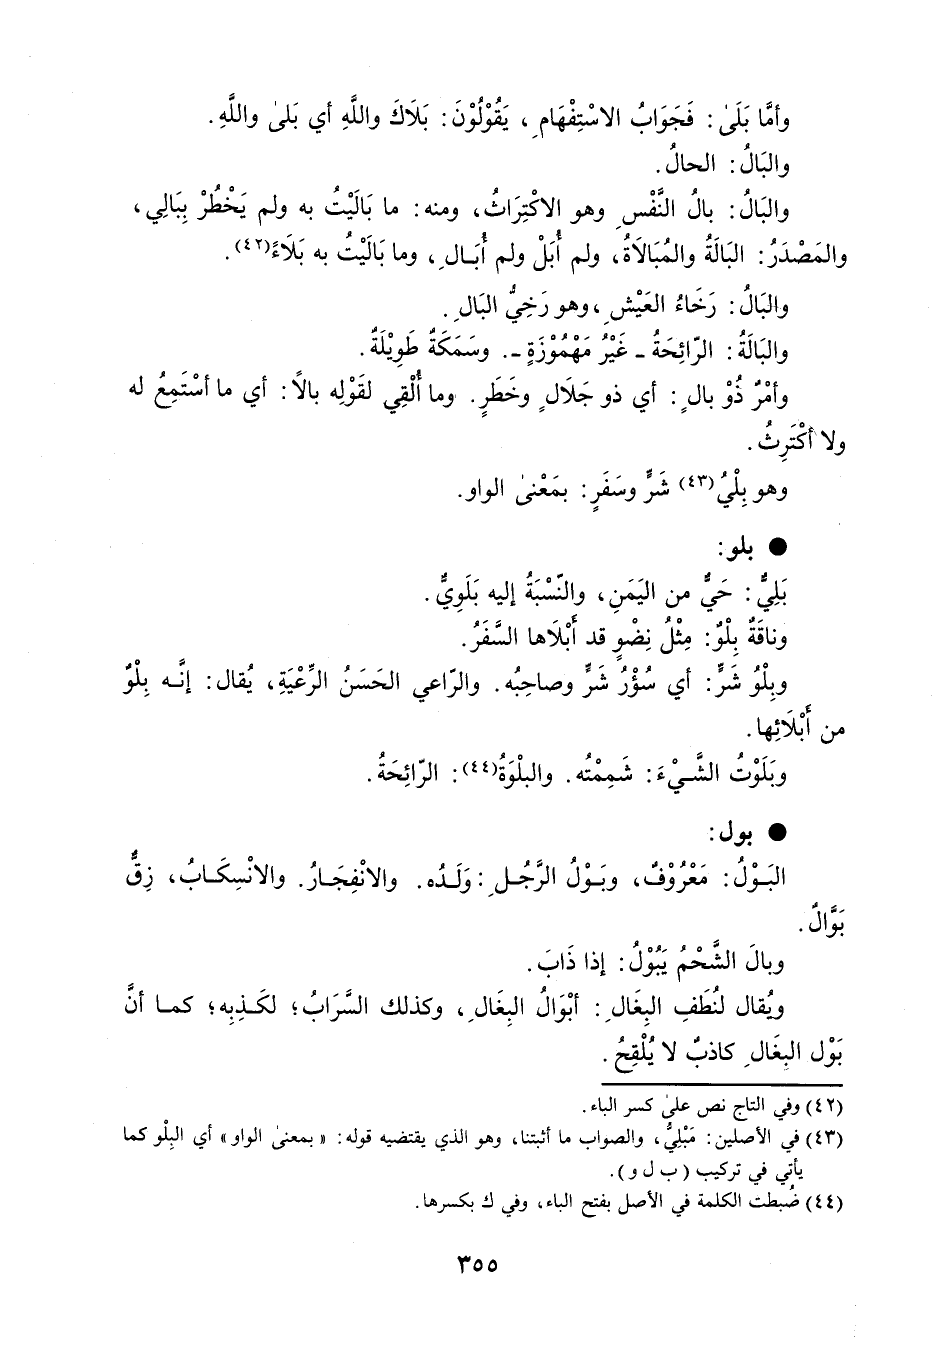 وأمَّا بَلَىٰ: فَجَوَابُ الاسْتِفْهَامِ، يَقُوْلُوْنَ: بَلَاكَ واللَّهِ أي بَلىٰ واللَّهِ.
والبَالُ: الحالُ.
والبَالُ: بالُ النَّفْسِ وهو الاكْتِرَاثُ، ومنه: ما بَالَيْتُ به ولم يَخْطُرْ بِبَالِي،
والمَصْدَرُ: البَالَةُ والمُبَالَاةُ، ولم أُبَلْ ولم أُبَالِ، وما بَالَيْتُ به بَلَاءً(٤٢).
والبَالُ: رَخَاءُ العَيْشِ، وهو رَخِيُّ البَالِ.
والبَالَةُ: الرّائِحَةُ ـ غَيْرُ مَهْمُوْزَةٍ ـ. وسَمَكَةٌ طَوِيْلَةٌ.
وأمْرٌ ذُوْ بالٍ: أي ذو جَلَالٍ وخَطَرٍ. وما أُلْقِي لقَوْلِه بالاً: أي ما أسْتَمِعُ له
ولا أكْتَرِثُ.
وهو بِلْيُ(٤٣) شَرٍّ وسَفَرٍ: بمَعْنىٰ الواو.
● بلو:
بَلِيٌّ: حَيٌّ من اليَمَنِ، والنِّسْبَةُ إليه بَلَوِيٌّ.
وناقَةٌ بِلْوٌ: مِثْلُ نِضْوٍ قد أَبْلَاها السَّفَرُ.
وبِلْوُ شَرٍّ: أي سُؤْرُ شَرٍّ وصاحِبُه. والرّاعي الحَسَنُ الرِّعْيَةِ، يُقال: إنَّه بِلْوٌ
من أَبْلَائِها.
وبَلَوْتُ الشَّيْءَ: شَمِمْتُه. والبلْوَةُ(٤٤): الرّائِحَةُ.
● بول:
البَوْلُ: مَعْرُوْفٌ، وبَوْلُ الرَّجُلِ: وَلَدُه. والانْفِجَارُ. والانْسِكَابُ، زِقٌّ
بَوَّالٌ.
وبالَ الشَّحْمُ يَبُوْلُ: إذا ذَابَ.
ويُقال لنُطَفِ البِغَالِ: أبْوَالُ البِغَالِ، وكذلك السَّرَابُ؛ لكَذِبِه؛ كما أنَّ
بَوْل البِغَالِ كاذبٌ لا يُلْقِحُ.
(٤٢) وفي التاج نص علىٰ كسر الباء.
(٤٣) في الأصلين: مَبْلِيُّ، والصواب ما أثبتنا، وهو الذي يقتضيه قوله: « بمعنىٰ الواو » أي البِلْو كما
يأتي في تركيب ( ب ل و ).
(٤٤) ضُبطت الكلمة في الأصل بفتح الباء، وفي ك بكسرها.
٣٥٥